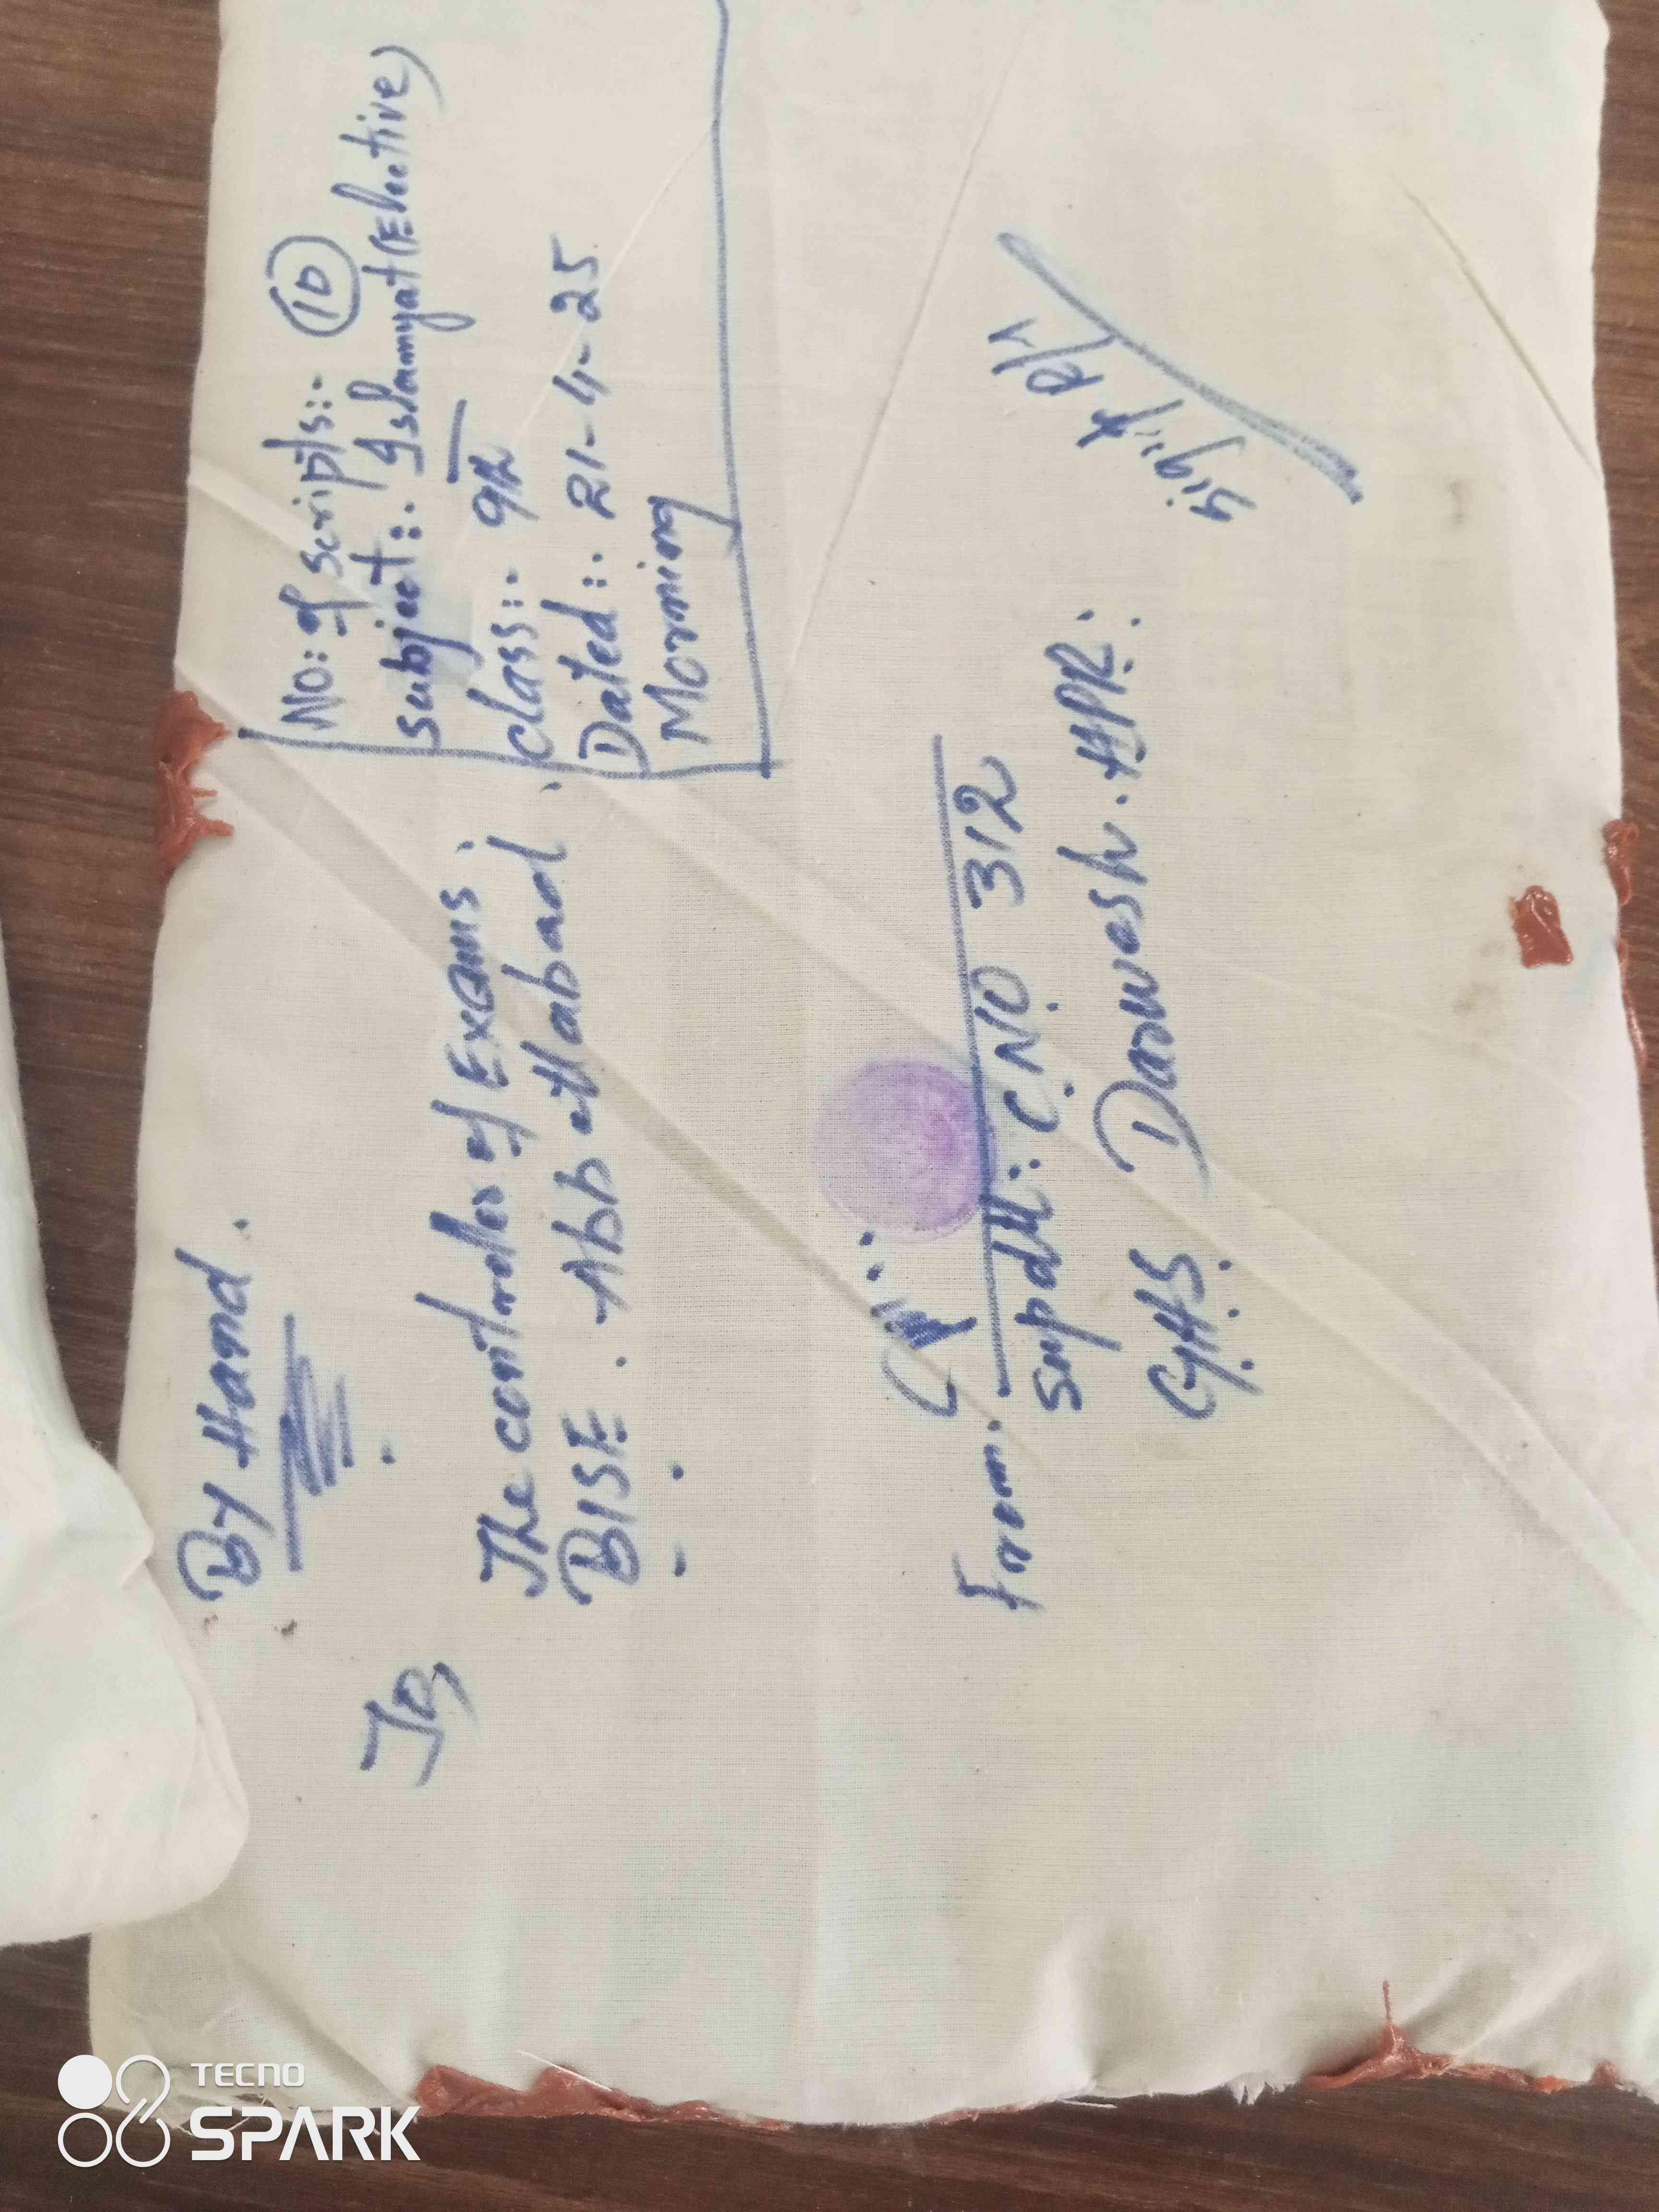 By Hand.
No: of scripts:- 10
subject:. Islamiyat (Elective)
class:- 9th
Dated:. 21-4-25
Morning
To
The controller of Exams:
BISE. Abbottabad.
From.
Supdtt: C.NO 312
GHS Darwesh. HPR:
TECNO
SPARK